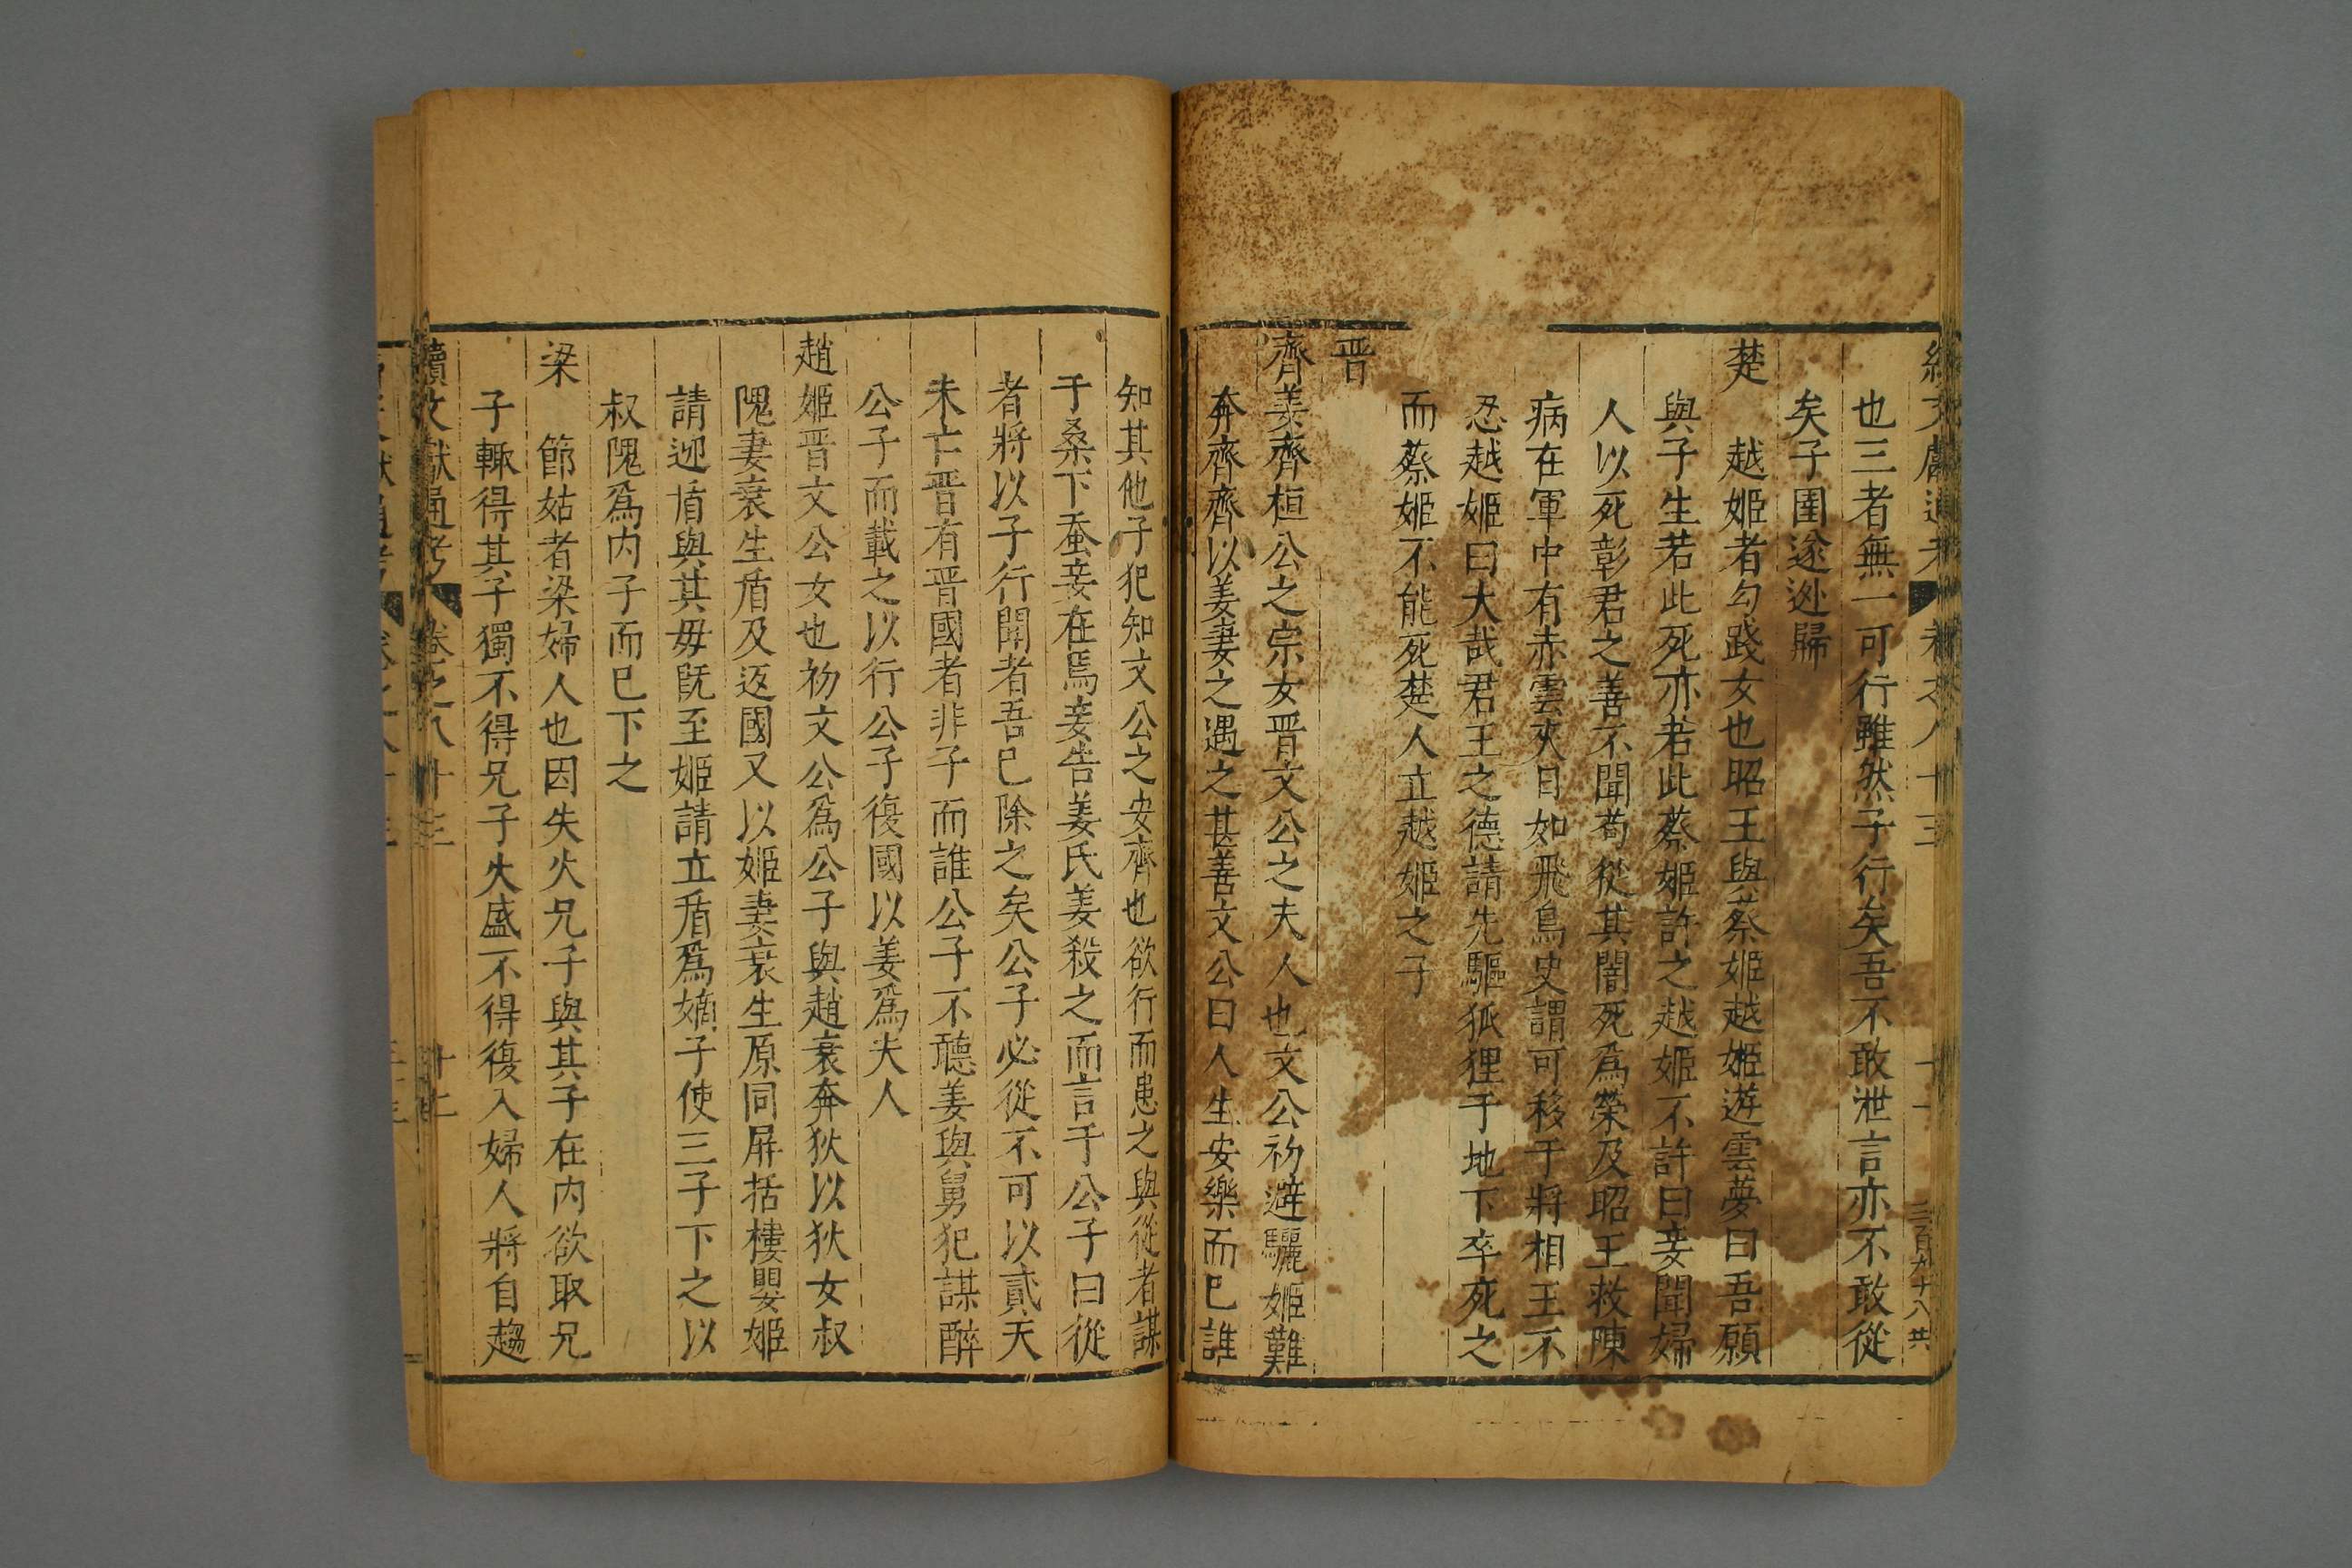 也三者無一可行雖然子行矣吾不敢泄言亦不敢從
矣子圉遂逃歸
楚
越姬者勾踐女也昭王與蔡姬越姬遊雲夢曰吾願
與子生若此死亦若此蔡姬許之越姬不許曰妾聞婦
人以死彰君之善不聞苟從其闇死爲榮及昭王救陳
病在軍中有赤雲夾日如飛鳥史謂可移于將相王不
忍越姬曰大哉君王之德請先驅狐狸于地下卒死之
而蔡姬不能死楚人立越姬之子
晉
齊姜齊桓公之宗女晋文公之夫人也文公初避驪姬難
奔齊齊以姜妻之遇之甚善文公曰人生安樂而已誰
知其他子犯知文公之安齊也欲行而患之與從者謀
于桑下蚕妾在焉妾告姜氏姜殺之而言于公子曰從
者將以子行聞者吾已除之矣公子必從不可以貳天
未亡晋有晋國者非子而誰公子不聽姜與舅犯謀醉
公子而載之以行公子復國以姜爲夫人
趙姬晋文公女也初文公爲公子與趙衰奔狄以狄女叔
隗妻衰生盾及返國又以姬妻衰生原同屏括樓嬰姬
請迎盾與其毋既至姬請立盾爲嫡子使三子下之以
叔隗爲内子而已下之
梁
節姑者梁婦人也因失火兄子與其子在内欲取兄
子輙得其子獨不得兄子火盛不得復入婦人將自趨
續文獻通考 卷之八十三 十二